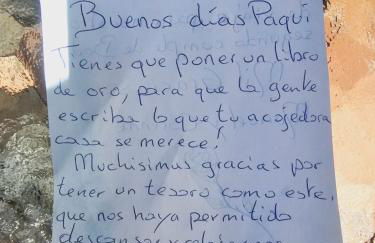 Buenos días Paqui
Tienes que poner un libro
de oro, para que la gente
escriba lo que tu acojedora
casa se merece!
Muchisimus gracias por
tener un tesoro como este,
que nos haya permitido
descansar